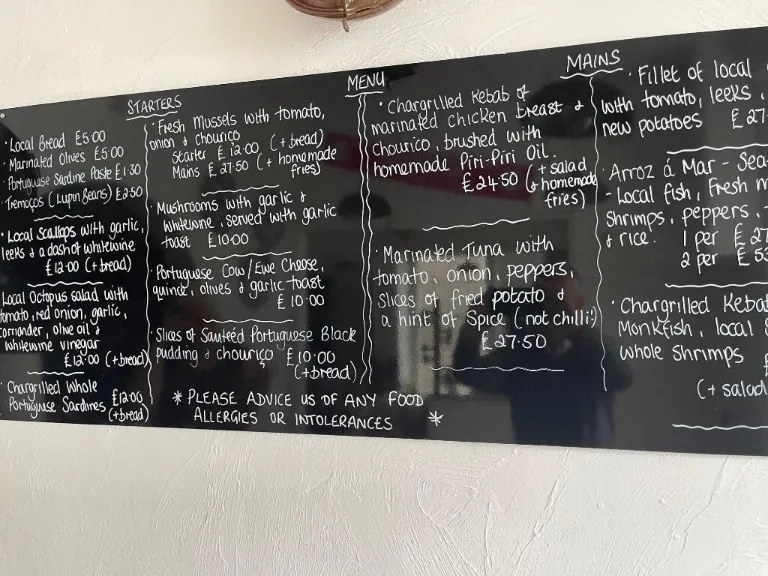 STARTERS
Local Bread £5.00
Marinated Olives £5.00
Portuguese Sardine Paste £1.30
Tremoços (Lupin Beans) £2.50
Local Scallops with garlic,
leeks & a dash of whitewine
£12.00 (+bread)
Local Octopus salad with
tomato, red onion, garlic,
corriander, olive oil &
whitewine vinegar
£12.00 (+bread)
Chargrilled Whole
Portuguese Sardines £12.00
(+bread)
Fresh Mussels with tomato,
onion & chouriço
Starter £12.00 (+bread)
Mains £27.50 (+ homemade
fries)
Mushrooms with garlic &
whitewine, served with garlic
toast £10.00
Portuguese Cow/Ewe Cheese,
quince, olives & garlic toast
£10.00
Slices of Sautéed Portuguese Black
pudding & chouriço £10.00
(+bread)
* PLEASE ADVICE US OF ANY FOOD
ALLERGIES OR INTOLERANCES *
MENU
Chargrilled Kebab of
marinated chicken breast &
chouriço, brushed with
homemade Piri-Piri Oil.
£24.50 (+ salad
& homemade
fries)
Marinated Tuna with
tomato, onion, peppers,
slices of fried potato &
a hint of Spice (not chilli!)
£27.50
MAINS
Fillet of local
with tomato, leeks,
new potatoes £27.
Arroz á Mar - Sea
Local fish, fresh m
shrimps, peppers,
& rice. 1 per £27
2 per £5
Chargrilled Kebab
Monkfish, local
whole shrimps
£
(+ salad